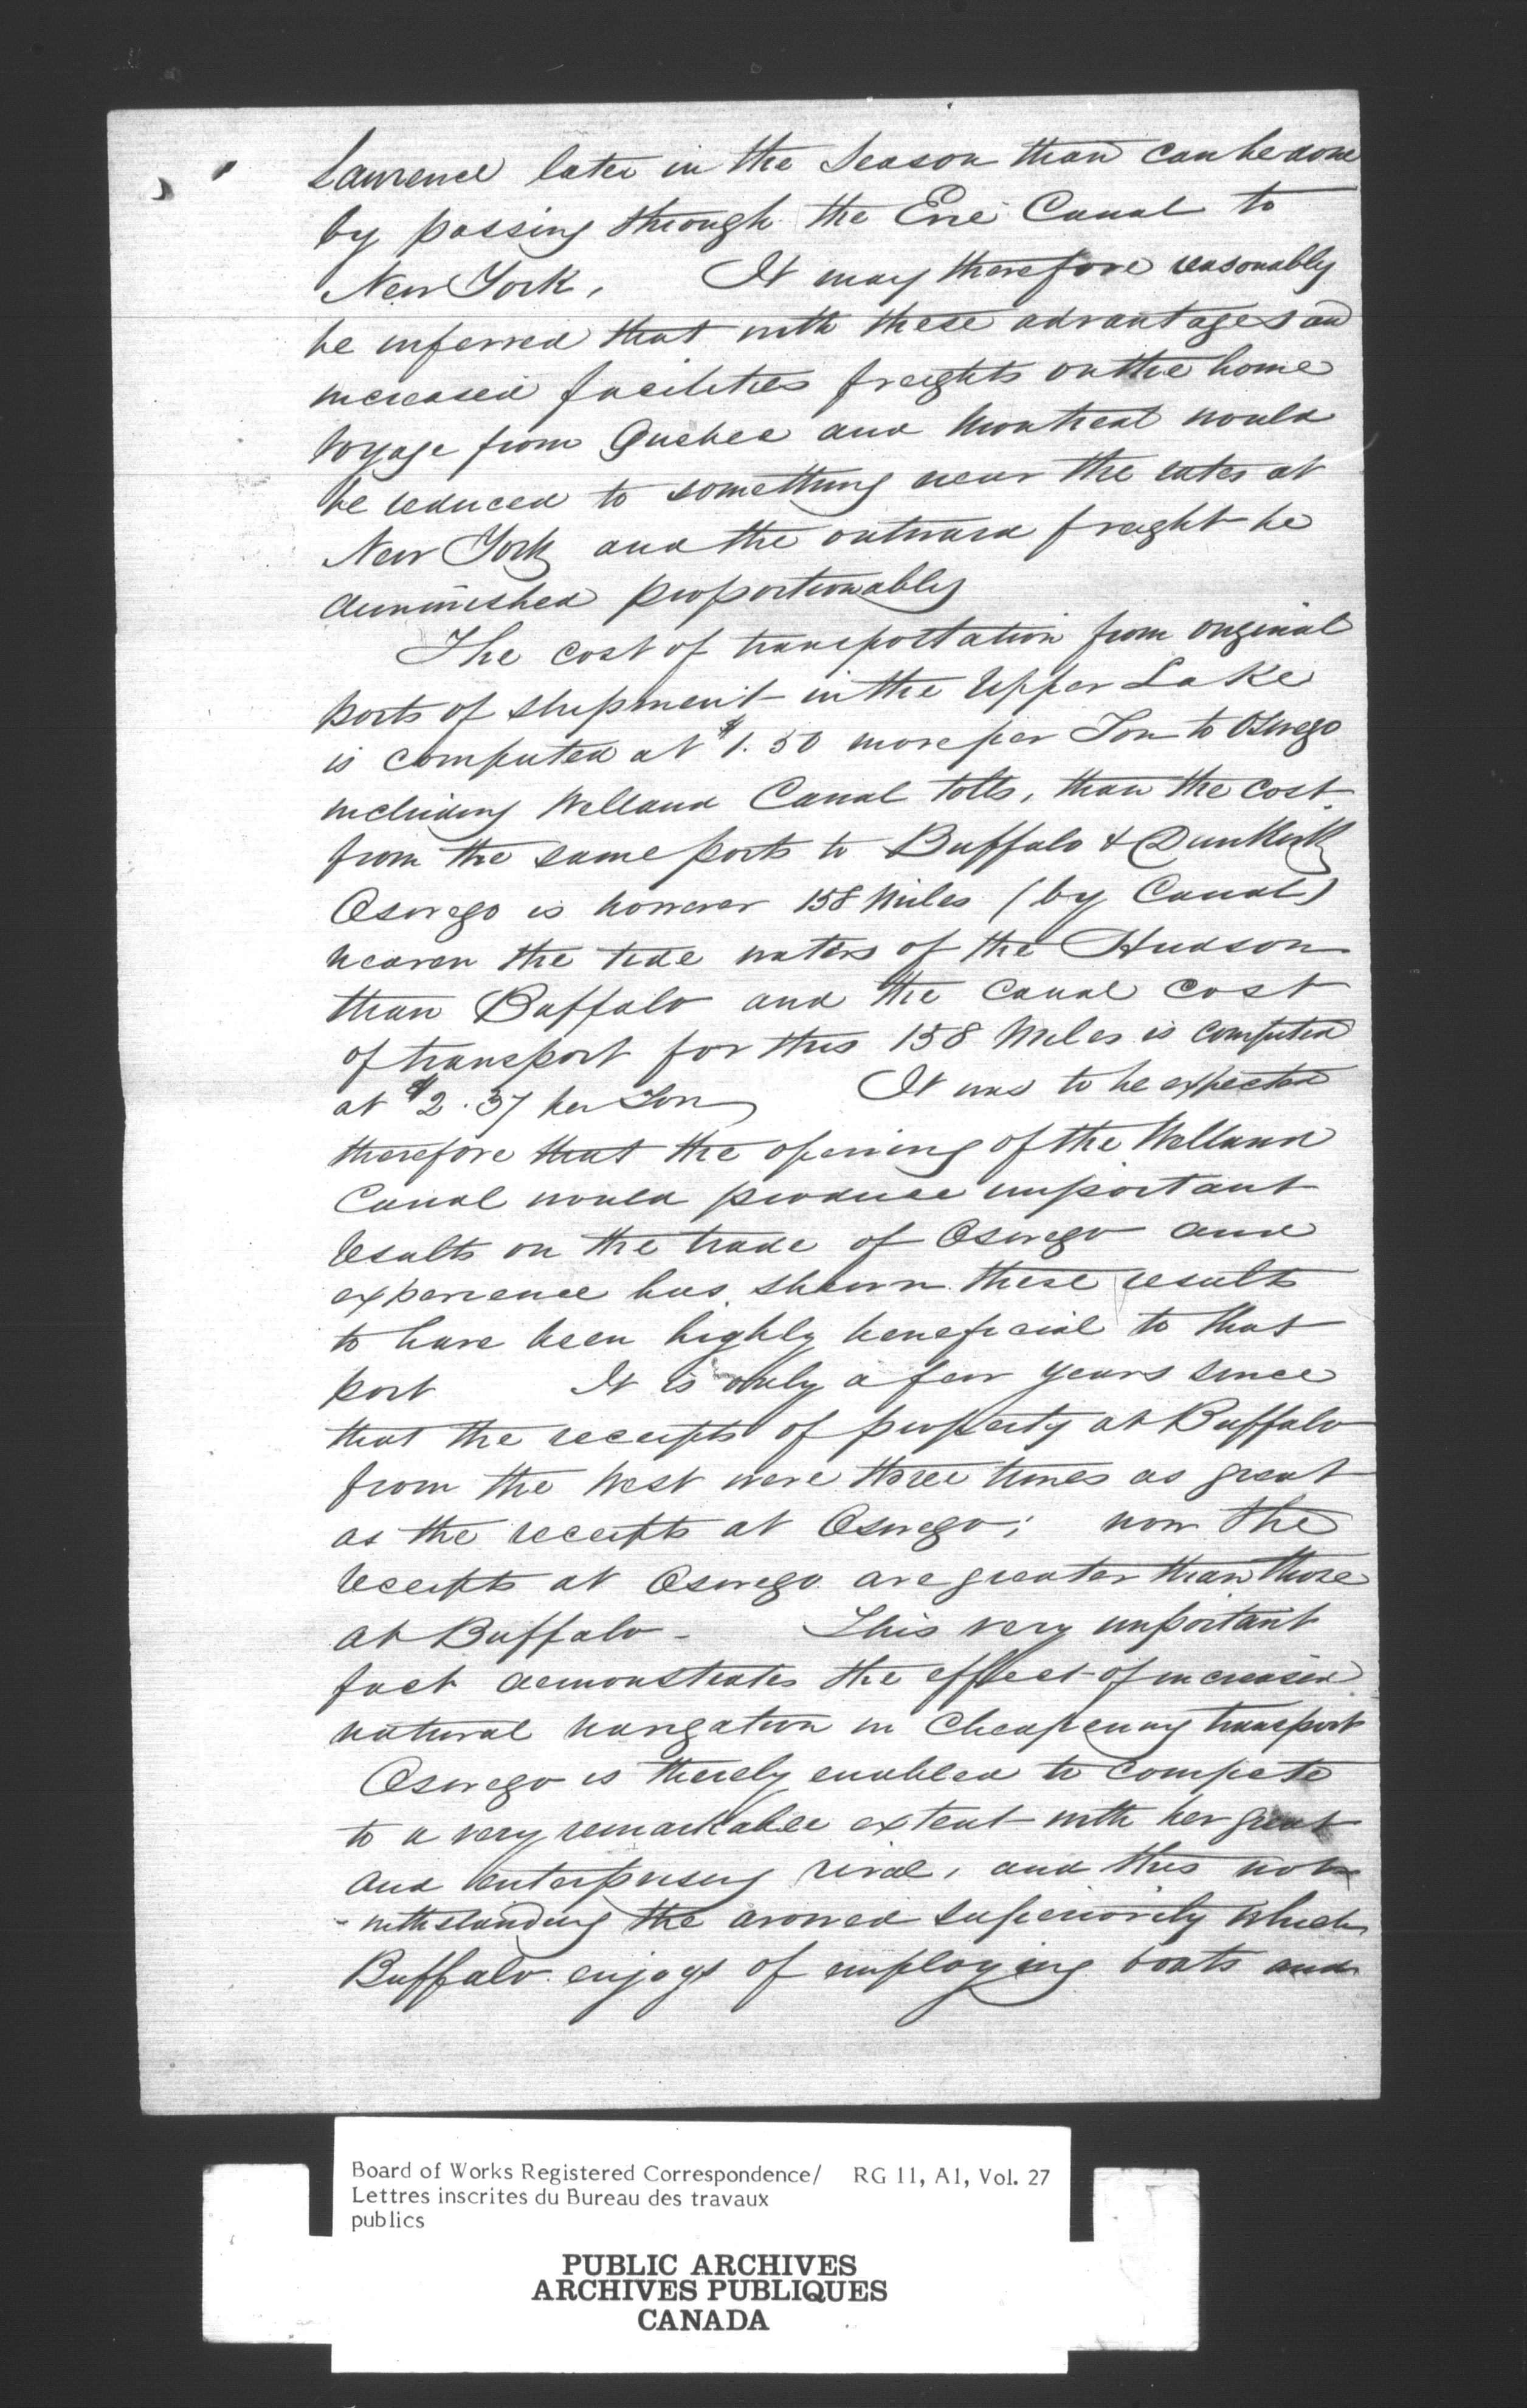 Lawrence later in the Season than can be done
by passing through the Erie Canal to
New York, It may therefore reasonably
be inferred that with these advantages and
increased facilities freights on the home
voyage from Quebec and Montreal would
be reduced to something near the rates at
New York and the outward freight be
diminished proportionably
The cost of transportation from original
ports of shipment in the Upper Lake
is computed at $1.50 more per Ton to Oswego
including Welland Canal tolls, than the cost
from the same ports to Buffalo & Dunkirk
Oswego is however 158 Miles (by Canal)
nearer the tide waters of the Hudson
than Buffalo and the canal cost
of transport for this 158 Miles is computed
at $2.37 per Ton It was to be expected
therefore that the opening of the Welland
Canal would produce important
results on the trade of Oswego and
experience has shewn these results
to have been highly beneficial to that
port It is only a few years since
that the receipts of property at Buffalo
from the West were three times as great
as the receipts at Oswego; now the
receipts at Oswego are greater than those
at Buffalo - This very important
fact demonstrates the effect of increased
natural navigation in cheapening transport
Oswego is thereby enabled to compete
to a very remarkable extent with her great
and enterprising rival, and this not
-withstanding the avowed superiority which
Buffalo enjoys of employing boats and
Board of Works Registered Correspondence/ RG 11, A1, Vol. 27
Lettres inscrites du Bureau des travaux
publics
PUBLIC ARCHIVES
ARCHIVES PUBLIQUES
CANADA